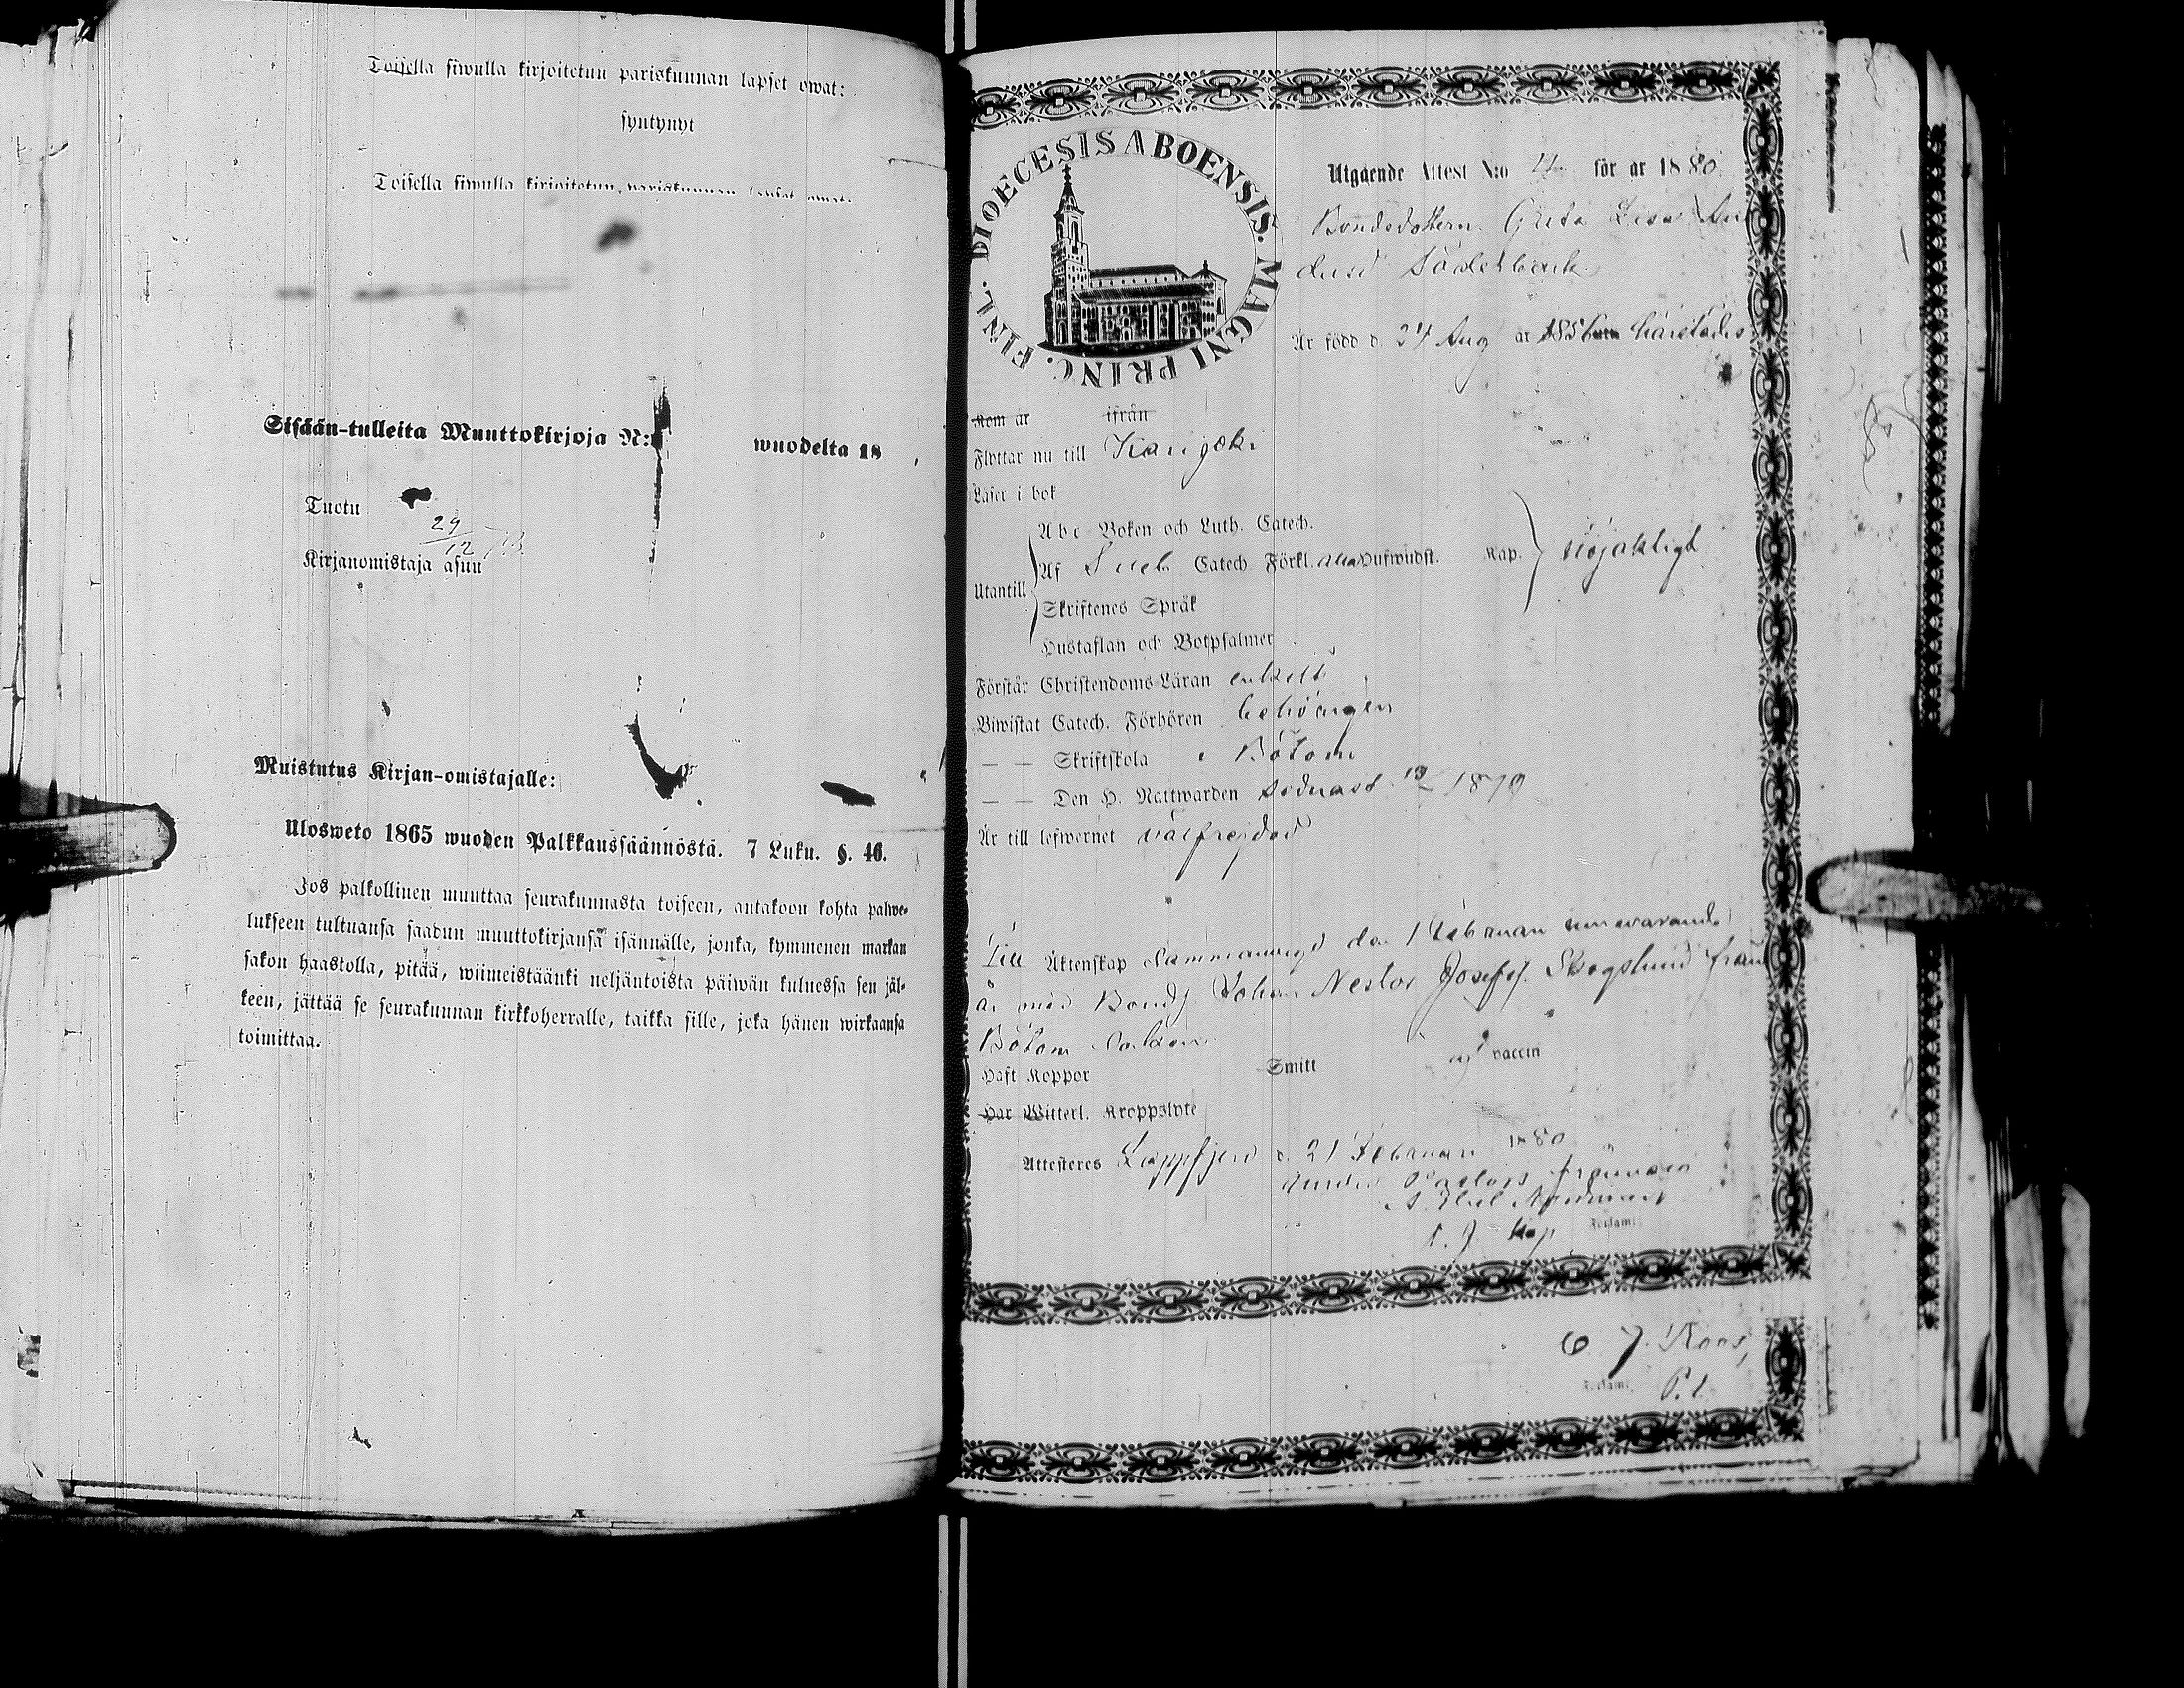 Toisella siwulla kirjoitetun pariskunnan lapset owat:
syntynyt
Toisella siwulla kirjoitetun pariskunnan lapset owat:
Sisään-tulleita Muuttokirjoja N:o wuodelta 18
Tuotu
29/12
Kirjanomistaja asuu
Muistutus Kirjan-omistajalle:
Ulosweto 1865 wuoden Palkkaussäännöstä. 7 Luku. §. 46.
Jos palkollinen muuttaa seurakunnasta toiseen, antakoon kohta palwe-
lukseen tultuansa saadun muuttokirjansa isännälle, jonka, kymmenen markan
sakon haastolla, pitää, wiimeistäänki neljäntoista päiwän kuluessa sen jäl-
keen, jättää se seurakunnan kirkkoherralle, taikka sille, joka hänen wirkaansa
toimittaa.
DIOECESIS ABOENSIS. MAGNI PRINC. FINL.
Utgående Attest N:o 4 för år 1880
Bondedottern Greta Lisa An
dersd Söderback
Är född d. 24 Aug år 1856 härstädes
Kom år ifrån
Flyttar nu till Karijoki
Läser i bok
Abc Boken och Luth. Catech.
Utantill
Af Sveb Catech Förkl. alla Hufwudst. Kap. nöjaktigt
Skriftenes Språk
Hustaflan och Botpsalmer
Förstår Christendoms-Läran enkelt
Biwistat Catech. Förhören behörigen
— — Skriftskola i Bötom
— — Den H. Nattwarden sednast 1879
Är till lefwernet välfrejdad
Till Äktenskap sammanvigd den 1 Februari innevarande
år med Bonds Johan Nestor Josefss. Skogslund från
Bötom socken
Haft Koppor Smitt vaccin
Har Witterl. Kroppslyte
Attesteres Lappfjerd d. 21 Februari 1880
under Pastors frånvaro
Nordman
Kap
C J. Roos,
P. l.